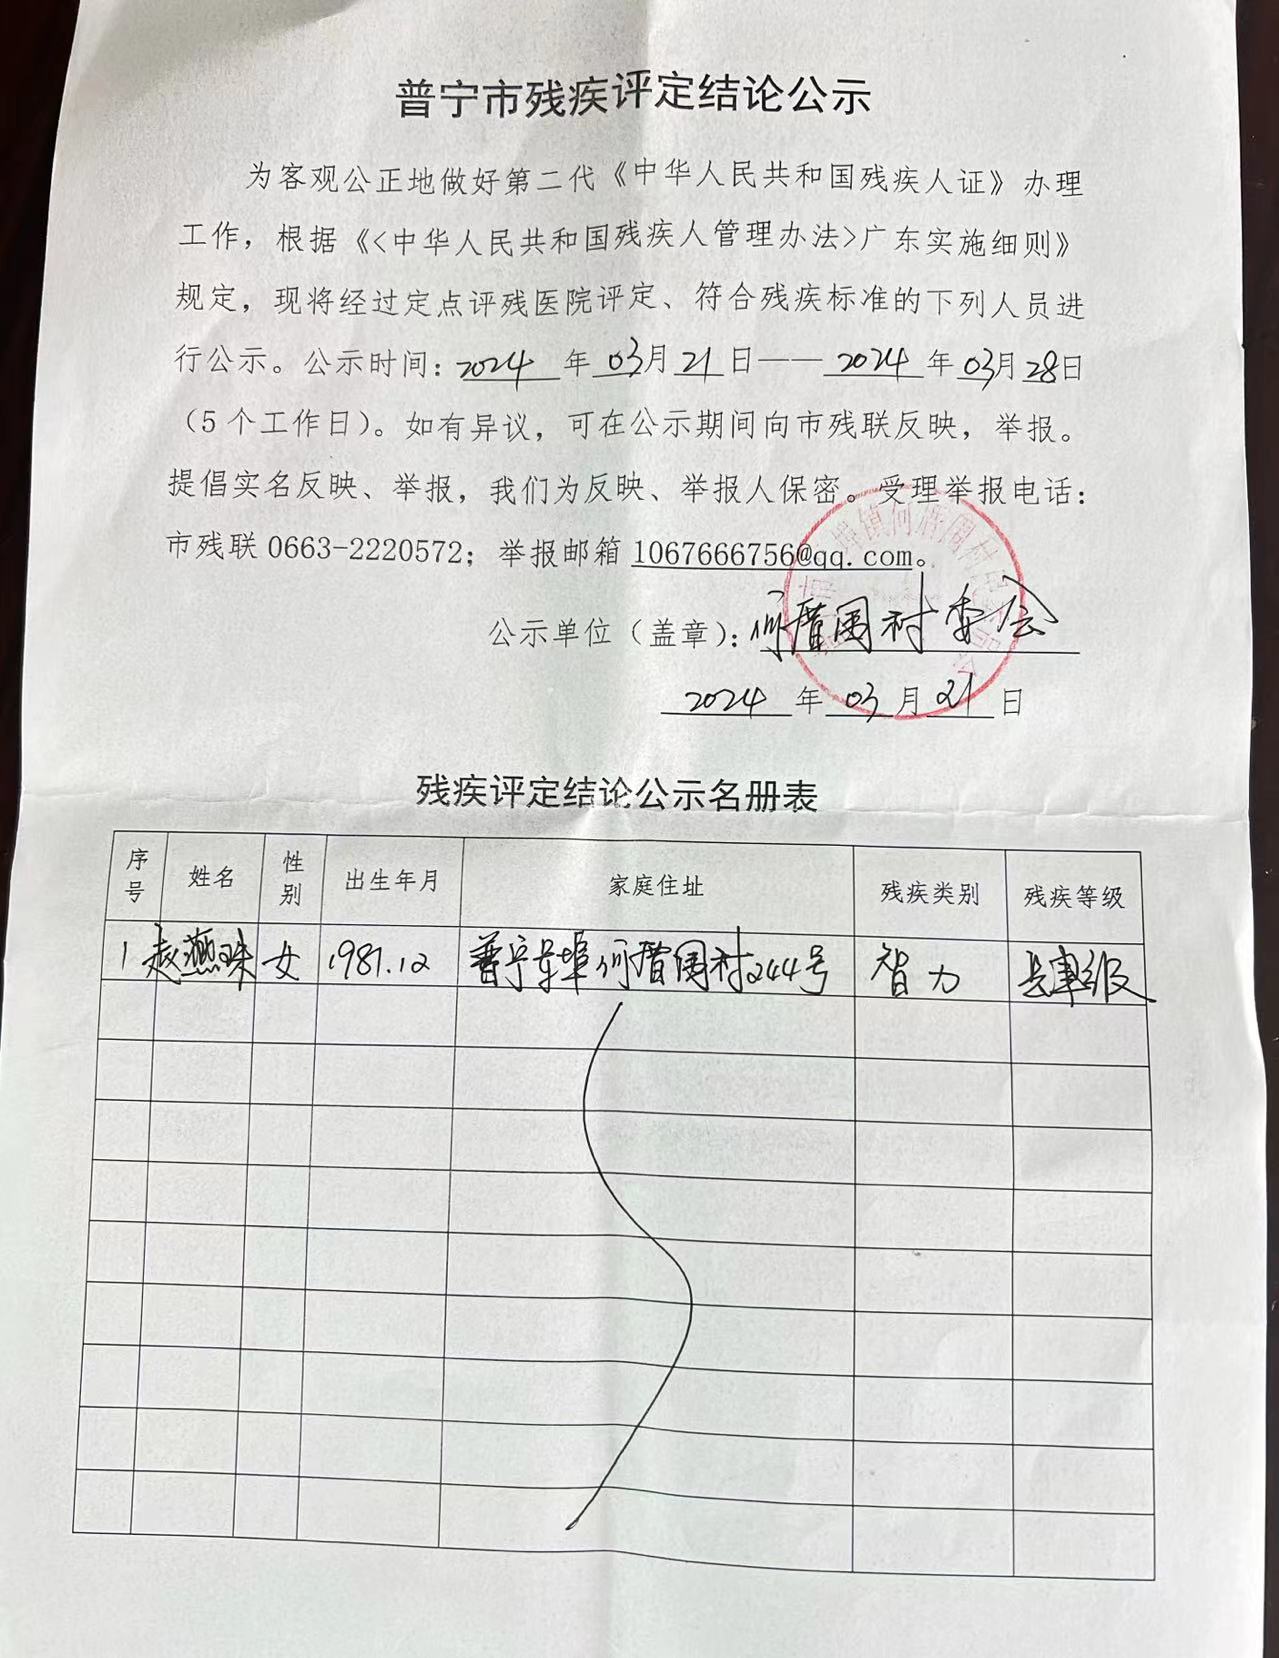 普宁市残疾评定结论公示
为客观公正地做好第二代《中华人民共和国残疾人证》办理
工作，根据《<中华人民共和国残疾人管理办法>广东实施细则》
规定，现将经过定点评残医院评定、符合残疾标准的下列人员进
行公示。公示时间：2024 年 03月 21 日—— 2024 年 03月 28日
（5 个工作日）。如有异议，可在公示期间向市残联反映，举报。
提倡实名反映、举报，我们为反映、举报人保密。受理举报电话：
市残联 0663-2220572；举报邮箱 1067666756@qq.com。
公示单位（盖章）：何厝围村委会
2024 年 03 月 21 日
残疾评定结论公示名册表
序号 姓名 性别 出生年月 家庭住址 残疾类别 残疾等级
1 赵燕珠 女 1981.12 普宁 埠何厝围村244号 智力 肆级